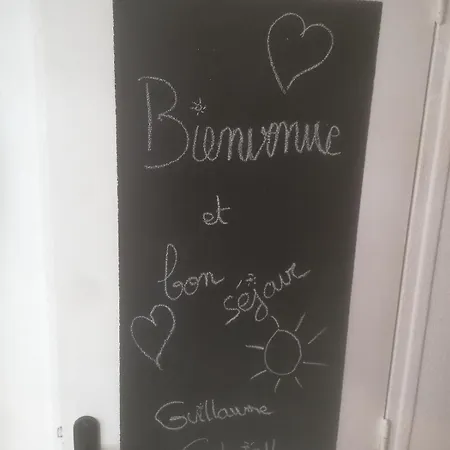 Bienvenue
et
bon séjour
Guillaume